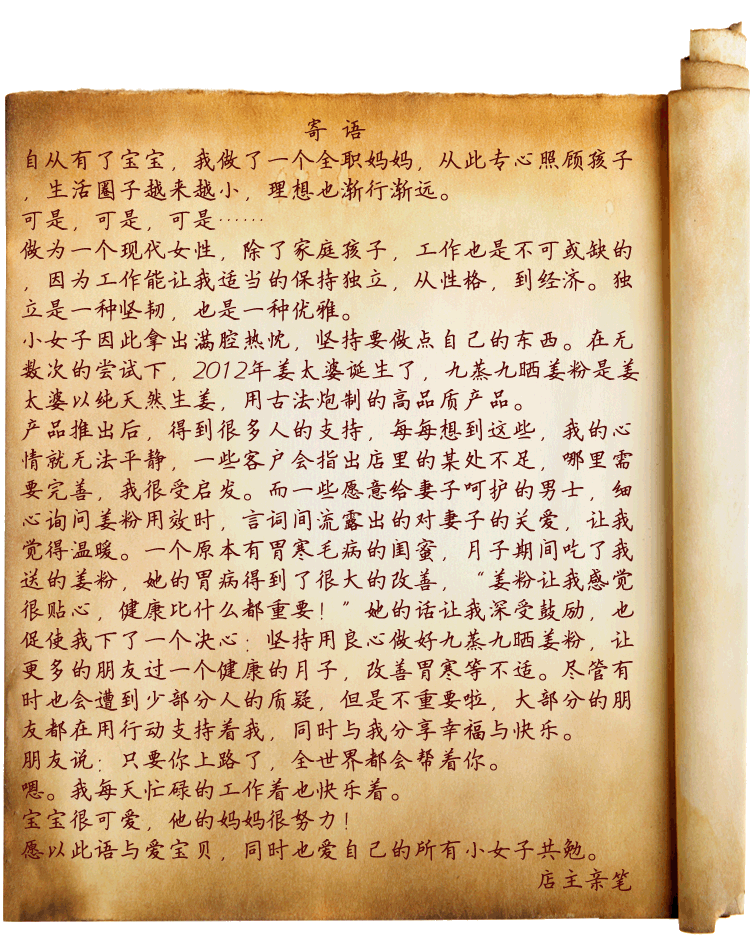 寄 语
自从有了宝宝，我做了一个全职妈妈，从此专心照顾孩子
，生活圈子越来越小，理想也渐行渐远。
可是，可是，可是……
做为一个现代女性，除了家庭孩子，工作也是不可或缺的
，因为工作能让我适当的保持独立，从性格，到经济。独
立是一种坚韧，也是一种优雅。
小女子因此拿出满腔热忱，坚持要做点自己的东西。在无
数次的尝试下，2012年姜太婆诞生了，九蒸九晒姜粉是姜
太婆以纯天然生姜，用古法炮制的高品质产品。
产品推出后，得到很多人的支持，每每想到这些，我的心
情就无法平静，一些客户会指出店里的某处不足，哪里需
要完善，我很受启发。而一些愿意给妻子呵护的男士，细
心询问姜粉用效时，言词间流露出的对妻子的关爱，让我
觉得温暖。一个原本有胃寒毛病的闺蜜，月子期间吃了我
送的姜粉，她的胃病得到了很大的改善，“姜粉让我感觉
很贴心，健康比什么都重要！”她的话让我深受鼓励，也
促使我下了一个决心：坚持用良心做好九蒸九晒姜粉，让
更多的朋友过一个健康的月子，改善胃寒等不适。尽管有
时也会遭到少部分人的质疑，但是不重要啦，大部分的朋
友都在用行动支持着我，同时与我分享幸福与快乐。
朋友说：只要你上路了，全世界都会帮着你。
嗯。我每天忙碌的工作着也快乐着。
宝宝很可爱，他的妈妈很努力！
愿以此语与爱宝贝，同时也爱自己的所有小女子共勉。
店主亲笔